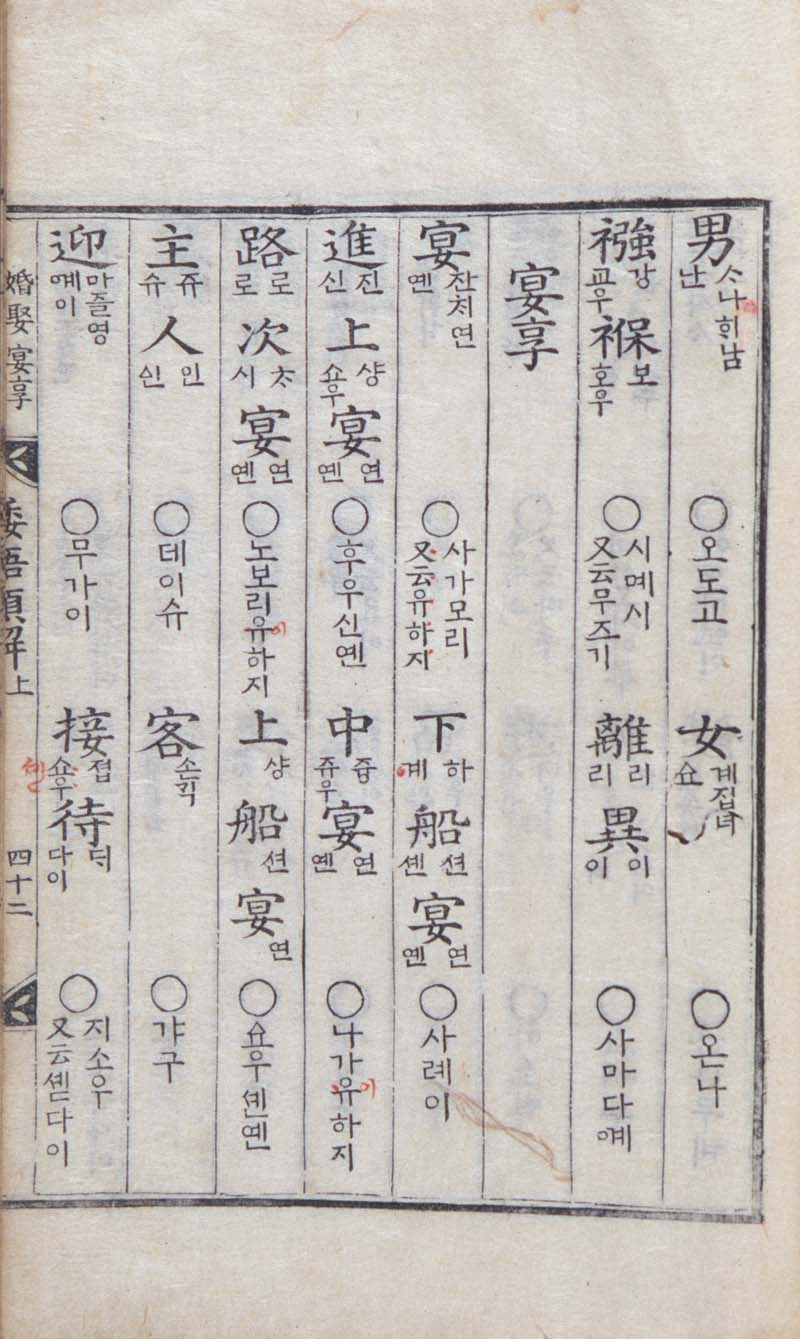 男 ᄉᆞ나희남 난 ○오도고 女 계집녀 쇼 ○온나
襁 강 교우 褓 보 호우 ○시몌시 又云무즈기 離 리 리 異 이 이 ○사마다몌
宴享
宴 잔치연 옌 ○사가모리 又云유하지 下 하 계 船 션 셴 宴 연 옌 ○사례이
進 진 신 上 샹 쇼우 宴 연 옌 ○후우신옌 中 즁 쥬우 宴 연 옌 ○나가유하지
路 로 로 次 ᄎᆞ 시 宴 연 옌 ○노보리유하지 上 샹 船 션 宴 연 ○쇼우셴옌
主 쥬 슈 人 인 신 ○데이슈 客 손ᄀᆡᆨ ○갸구
迎 마즐영 몌이 ○무가이 接 졉 쇼우 待 ᄃᆡ 다이 ○지소우 又云셷다이
婚娶 宴享 倭語類解 上 四十二